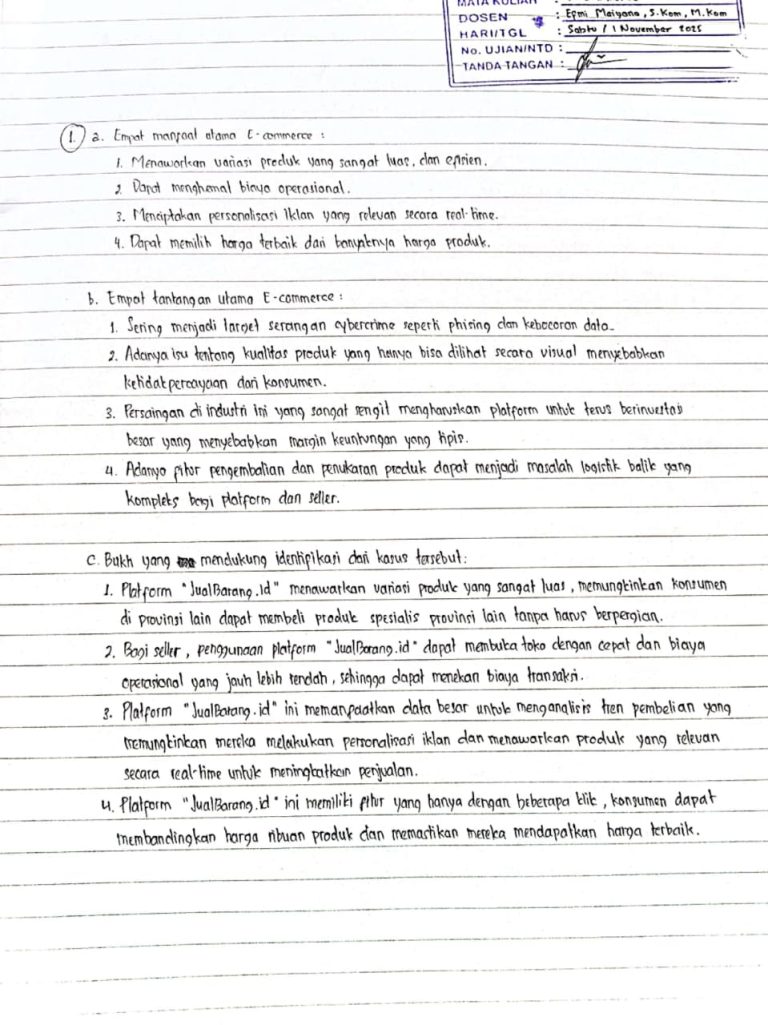 MATA KULIAH :
DOSEN : Efmi Maiyana, S.Kom, M.Kom
HARI/TGL : Sabtu / 1 November 2025
No. UJIAN/NTD :
TANDA TANGAN :
1. a. Empat manfaat utama E-commerce :
1. Menawarkan variasi produk yang sangat luas, dan efisien.
2. Dapat menghemat biaya operasional.
3. Menciptakan personalisasi iklan yang relevan secara real-time.
4. Dapat memilih harga terbaik dari banyaknya harga produk.
b. Empat tantangan utama E-commerce :
1. Sering menjadi target serangan cybercrime seperti phising dan kebocoran data.
2. Adanya isu tentang kualitas produk yang hanya bisa dilihat secara visual menyebabkan
ketidatpercayaan dari konsumen.
3. Persaingan di industri ini yang sangat sengit mengharuskan platform untuk terus berinvestasi
besar yang menyebabkan margin keuntungan yang tipis.
4. Adanya fitur pengembalian dan penukaran produk dapat menjadi masalah logistik balik yang
kompleks bagi platform dan seller.
C. Bukti yang mendukung identifikasi dari kasus tersebut:
1. Platform "JualBarang.Id" menawarkan variasi produk yang sangat luas, memungkinkan konsumen
di provinsi lain dapat membeli produk spesialis provinsi lain tanpa harus berpergian.
2. Bagi seller, penggunaan platform "JualBarang.id" dapat membuka toko dengan cepat dan biaya
operasional yang jauh lebih rendah, sehingga dapat menekan biaya transaksi.
3. Platform "JualBarang.id" ini memanfaatkan data besar untuk menganalisis tren pembelian yang
memungkinkan mereka melakukan personalisasi iklan dan menawarkan produk yang relevan
secara real-time untuk meningkatkan penjualan.
4. Platform "JualBarang.id" ini memiliki fitur yang hanya dengan beberapa klik, konsumen dapat
membandingkan harga ribuan produk dan memastikan mereka mendapatkan harga terbaik.